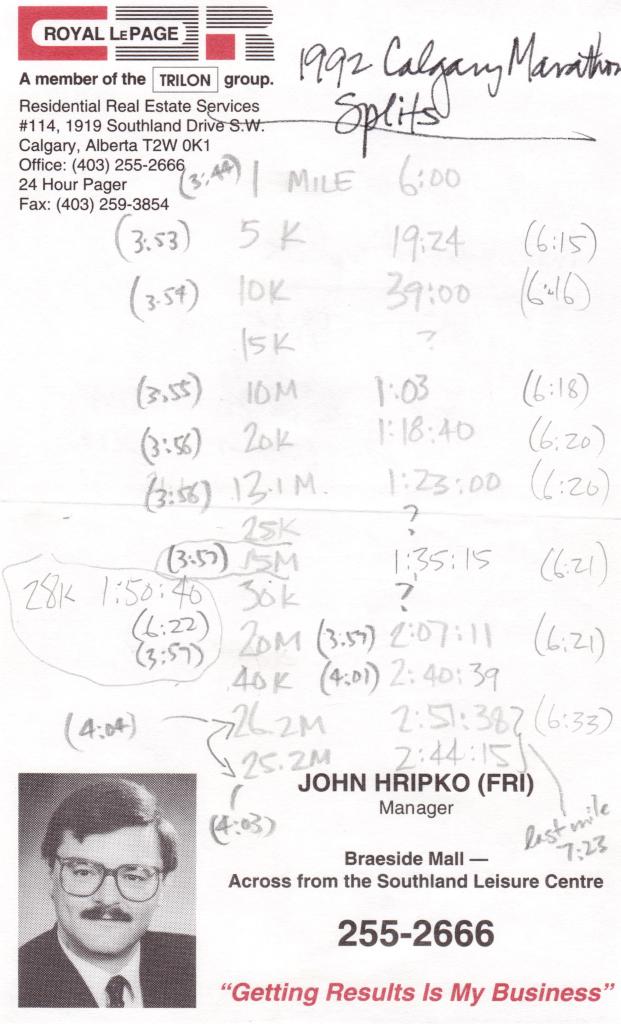 ROYAL LEPAGE
1992 Calgary Marathon
Splits
A member of the TRILON group.
Residential Real Estate Services
#114, 1919 Southland Drive S.W.
Calgary, Alberta T2W 0K1
Office: (403) 255-2666
24 Hour Pager
Fax: (403) 259-3854
(3:44) 1 MILE 6:00
(3:53) 5K 19:24 (6:15)
(3:54) 10K 39:00 (6:16)
15K ?
(3:55) 10M 1:03 (6:18)
(3:56) 20K 1:18:40 (6:20)
(3:56) 13.1 M. 1:23:00 (6:20)
25K ?
(3:57) 15M 1:35:15 (6:21)
28K 1:50:40
(6:22)
(3:57)
30K ?
20M (3:57) 2:07:11 (6:21)
40K (4:01) 2:40:39
(4:04) 26.2M 2:51:38 (6:33)
25.2M 2:44:15
(4:03)
Last mile
7:23
JOHN HRIPKO (FRI)
Manager
Braeside Mall —
Across from the Southland Leisure Centre
255-2666
“Getting Results Is My Business”